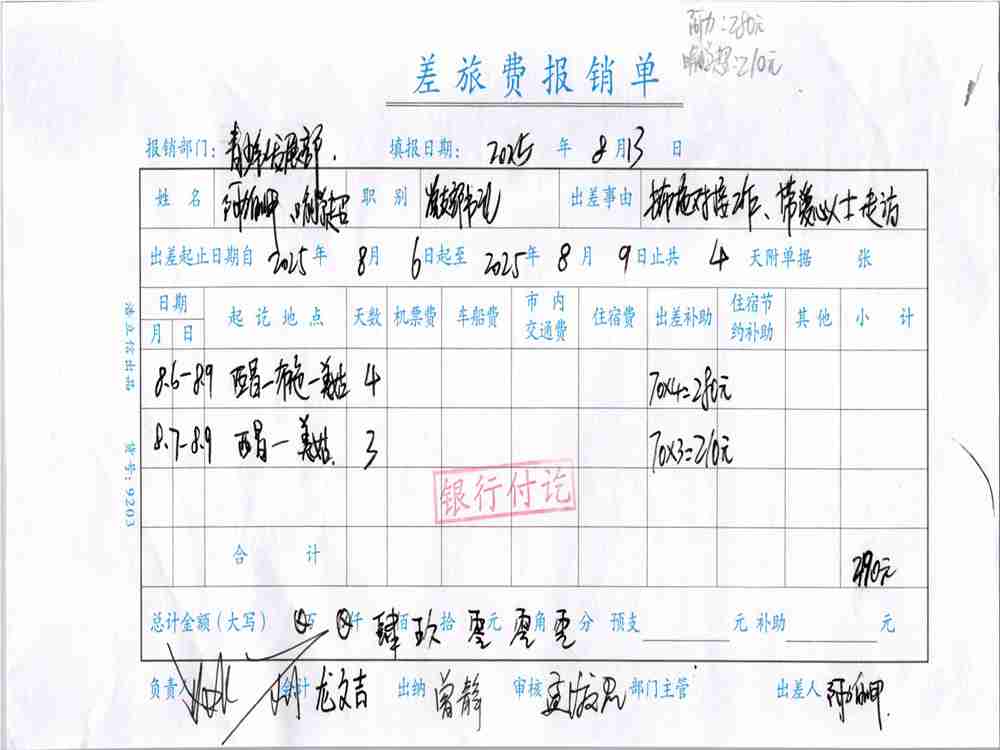 阿力：280元
210元
差旅费报销单
报销部门： 发展部. 填报日期： 2025 年 8 月 13 日
姓名 职别 出差事由 对接工作、带爱心人士走访
出差起止日期自 2025 年 8 月 6 日起至 2025 年 8 月 9 日止共 4 天附单据 张
日期 月 日 起讫地点 天数 机票费 车船费 市内交通费 住宿费 出差补助 住宿节约补助 其他 小计
8.6-8.9 西昌-布拖-美姑 4 70×4=280元
8.7-8.9 西昌-美姑. 3 70×3=210元
银行付讫
合计 490元
总计金额（大写） ⊗百 ⊗仟 肆百 玖拾 零元 零角 零分 预支 元 补助 元
负责人 会计 龙文吉 出纳 曾静 审核 部门主管 出差人
浩立信出品 货号：9203